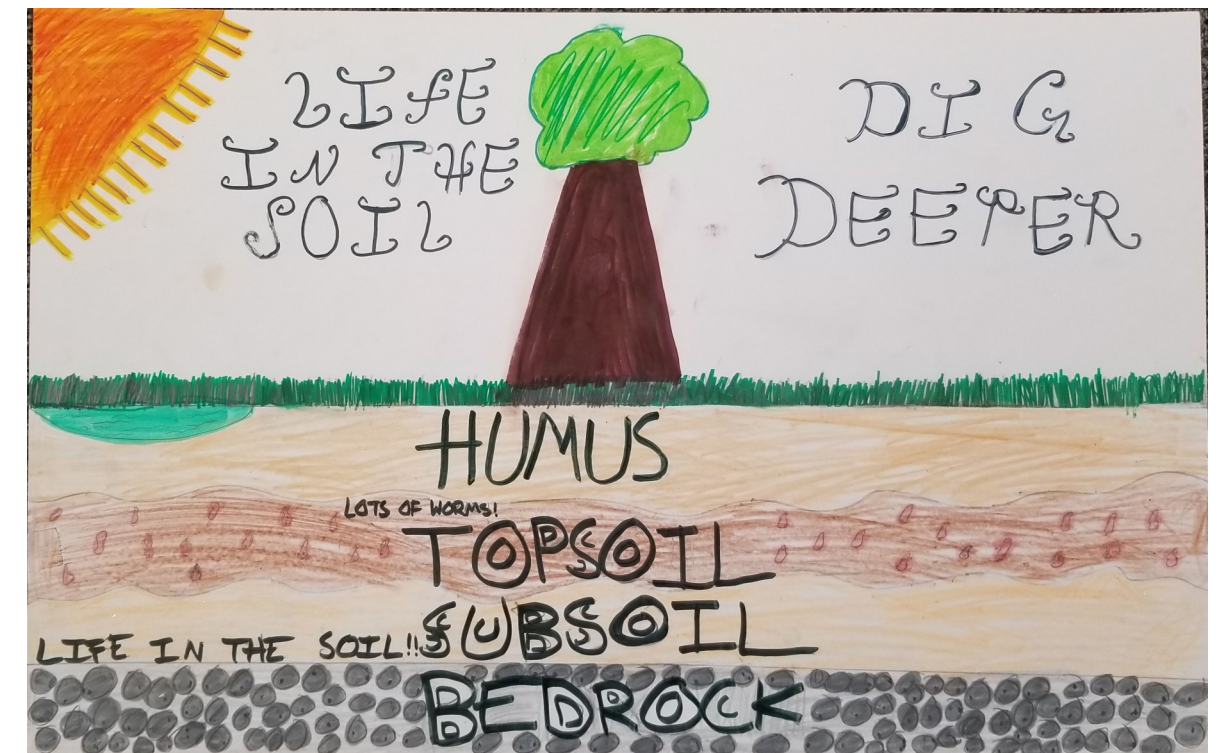 LIFE
IN THE
SOIL
DIG
DEEPER
HUMUS
LOTS OF WORMS!
TOPSOIL
SUBSOIL
LIFE IN THE SOIL!!
BEDROCK